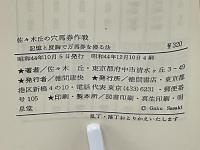 佐々木丘の穴馬券作戦
記憶と反胸で万馬券を獲る法
¥320
昭和44年10月5日発行 昭和44年12月10日4刷
★著者/佐々木 丘・東京都府中市清水ヶ丘3-49
★発行者/徳間康快 ★発行所/徳間書店・東京都
港区新橋4の10・電話代表東京(433)6231・郵便番
号105 ★印刷・製本所/図書印刷・真生印刷・明
泉堂
© Gaku Sasaki
乱丁・落丁おとりかえいたします